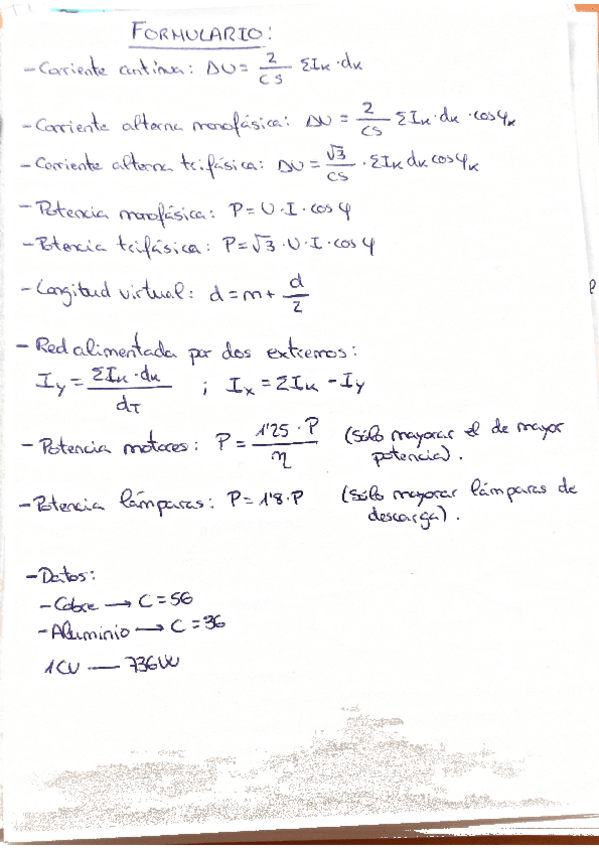 FORMULARIO:
- Corriente continua: ΔU = 2/CS ΣIk·dk
- Corriente alterna monofásica: ΔU = 2/CS ΣIk·dk·cosφk
- Corriente alterna trifásica: ΔU = √3/CS · ΣIk dk cosφk
- Potencia monofásica: P = U·I·cos φ
- Potencia trifásica: P = √3·U·I·cos φ
- Longitud virtual: d = m + d/2
- Red alimentada por dos extremos:
Iy = ΣIk·dk/dT ; Ix = ΣIk - Iy
- Potencia motores: P = 1'25·P/η (Sólo mayorar el de mayor
potencia).
- Potencia lámparas: P = 1'8·P (Sólo mayorar lámparas de
descarga).
- Datos:
- Cobre → C = 56
- Aluminio → C = 36
1CV — 736W